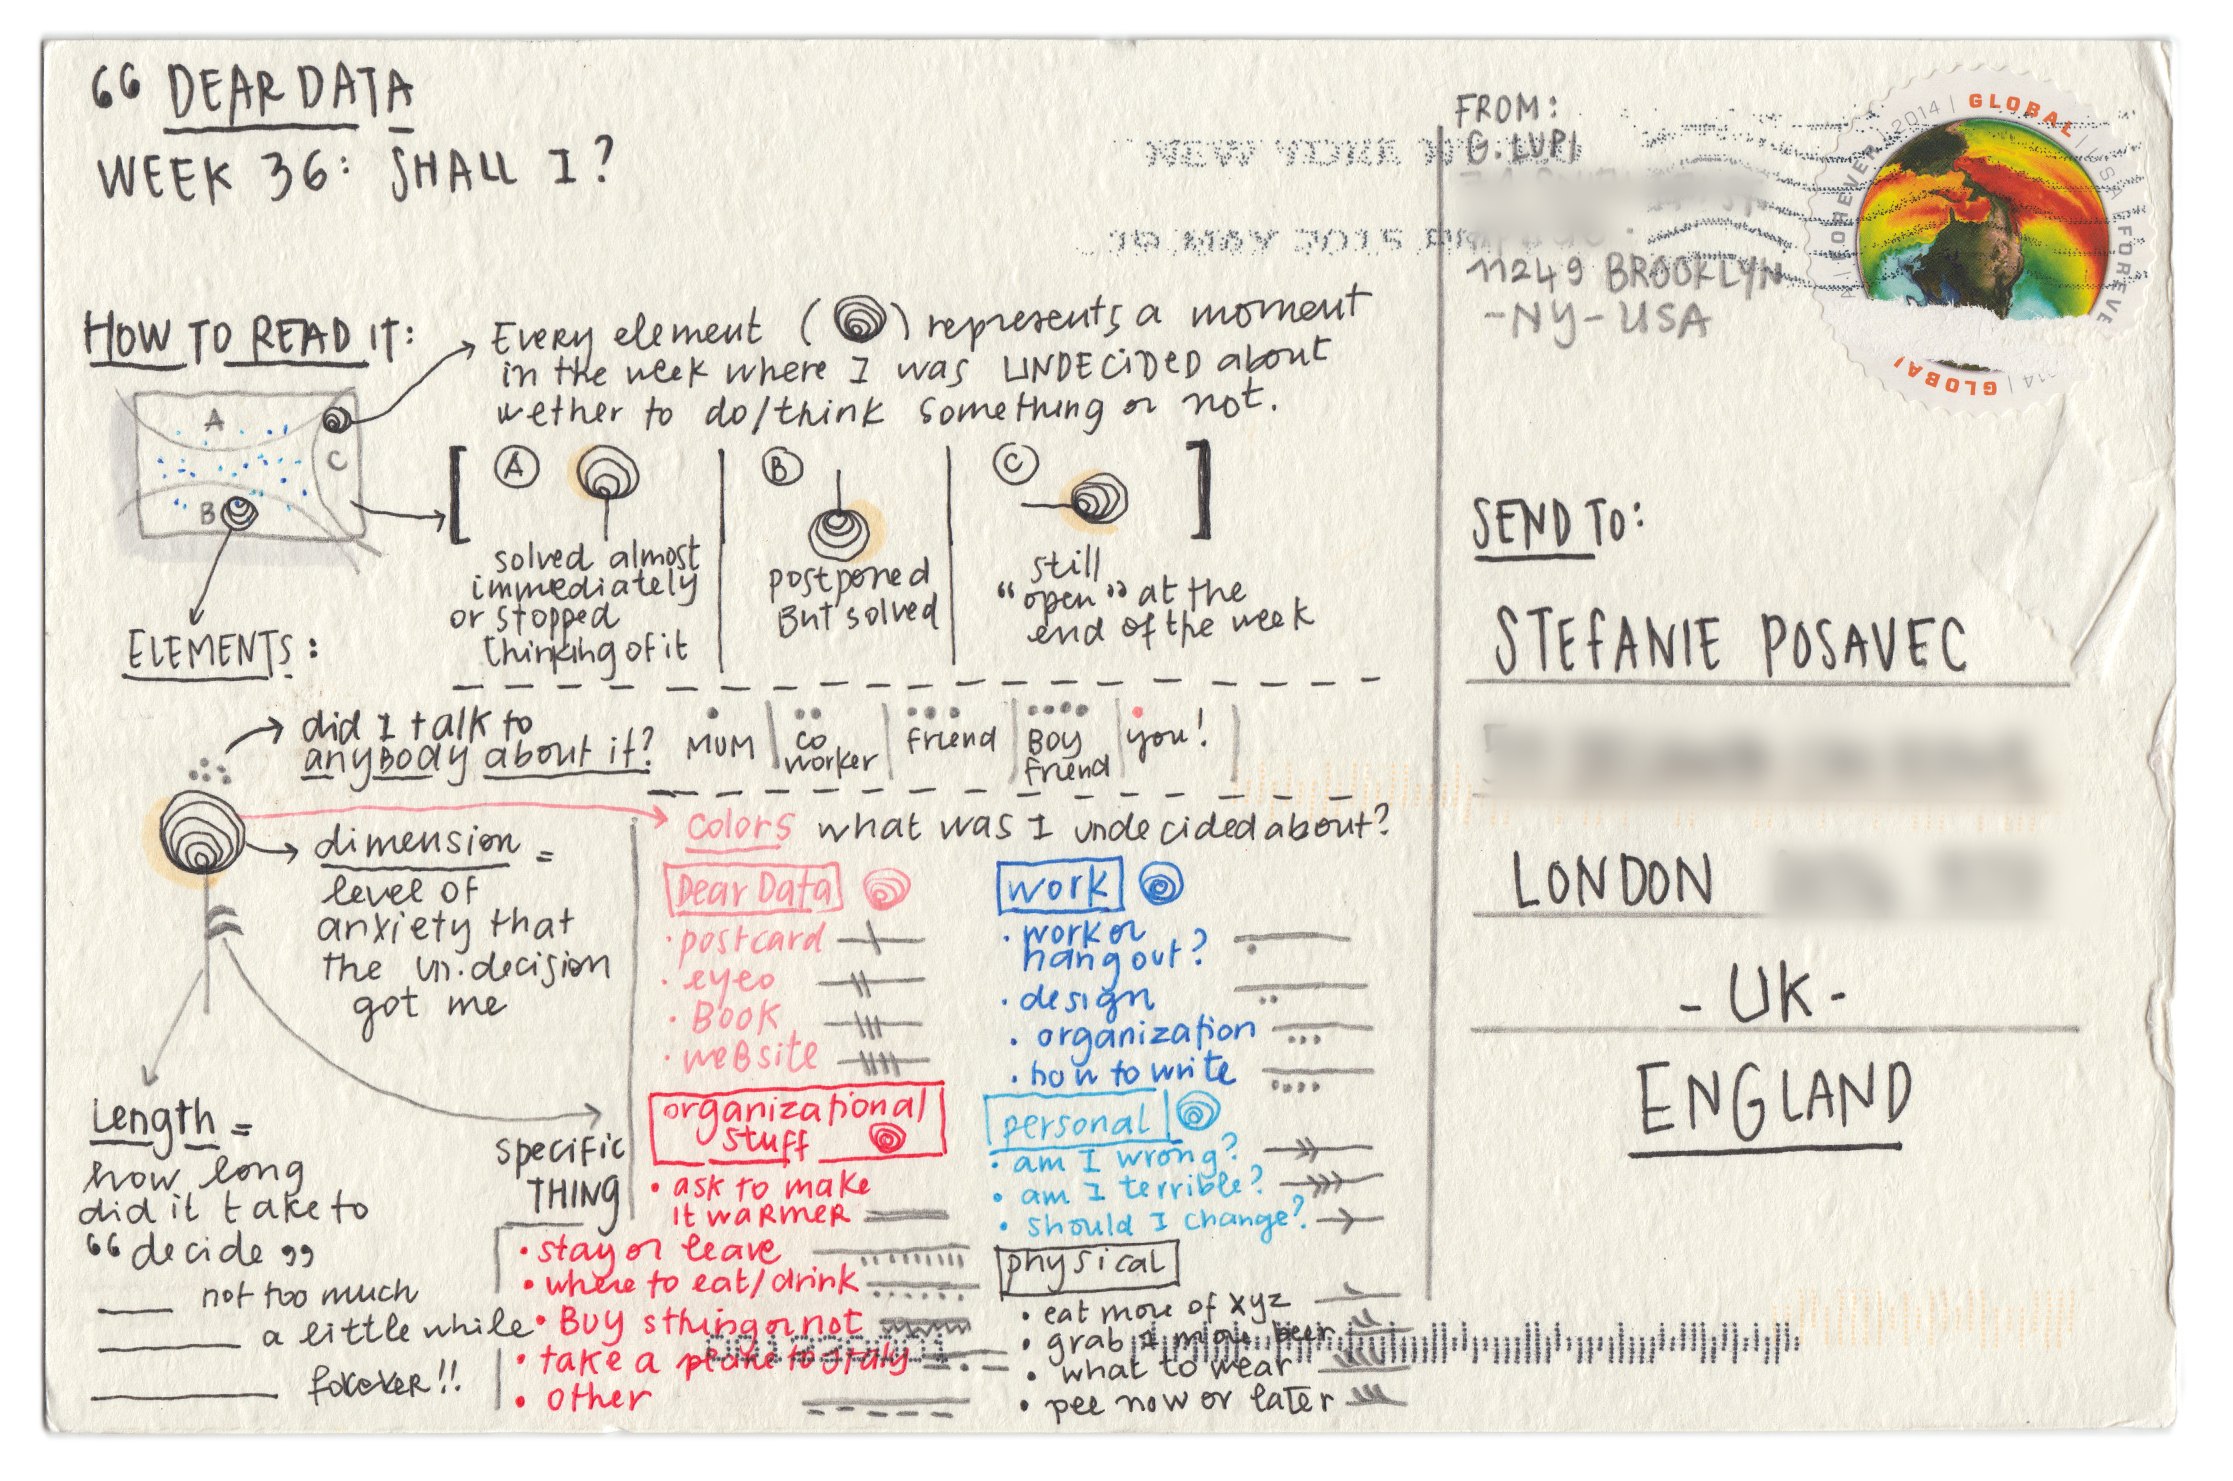 “ DEAR DATA
WEEK 36: SHALL I?
HOW TO READ IT:
Every element ( ) represents a moment
in the week where I was UNDECIDED about
wether to do/think something or not.
A
B
C
[ A
solved almost
immediately
or stopped
thinking of it
B
postponed
But solved
C ]
still
“open” at the
end of the week
ELEMENTS:
did I talk to
anybody about it?
MUM
co
worker
friend
Boy
friend
you!
dimension =
level of
anxiety that
the un.decision
got me
Length =
how long
did it take to
“decide”
not too much
a little while
forever!!
specific
THING
colors what was I undecided about?
Dear Data
• postcard
• eyeo
• Book
• website
work
• work or
hang out?
• design
• organization
• how to write
organizational
stuff
• ask to make
it warmer
• stay or leave
• where to eat/drink
• Buy sthing or not
• take a plane to Italy
• other
personal
• am I wrong?
• am I terrible?
• should I change?
physical
• eat more of xyz
• grab 1 more beer
• what to wear
• pee now or later
NEW YORK
19 MAY 2015
FROM:
G. LUPI
11249 BROOKLYN
-NY- USA
GLOBAL
FOREVER
2014
USA FOREVE
GLOBAL
SEND TO:
STEFANIE POSAVEC
LONDON
- UK -
ENGLAND